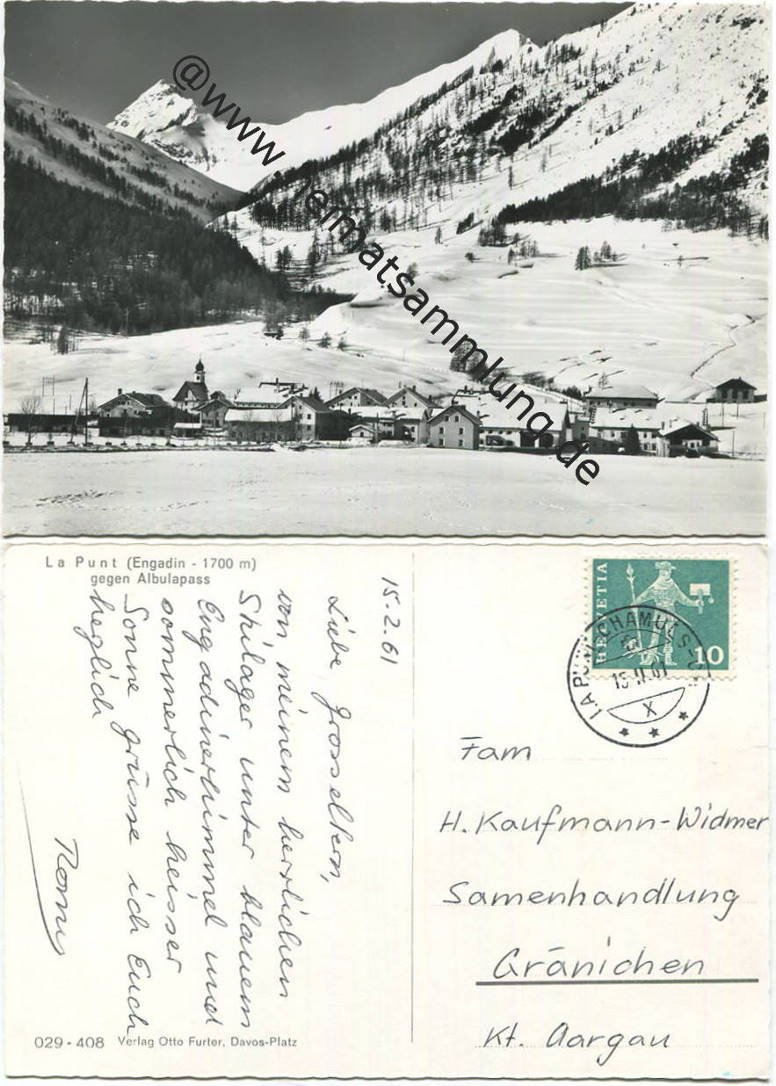 @www.heimatsammlung.de
La Punt (Engadin - 1700 m)
gegen Albulapass
15.2.61
Liebe Grosseltern,
von meinem herrlichen
Skilager unter blauem
Engadinerhimmel und
sommerlich heisser
Sonne grüsse ich Euch
herzlich
Romy
029 - 408 Verlag Otto Furter, Davos-Platz
HELVETIA
10
LA PUNT-CHAMUES-
15.II.61
X
Fam
H. Kaufmann-Widmer
Samenhandlung
Gränichen
Kt. Aargau